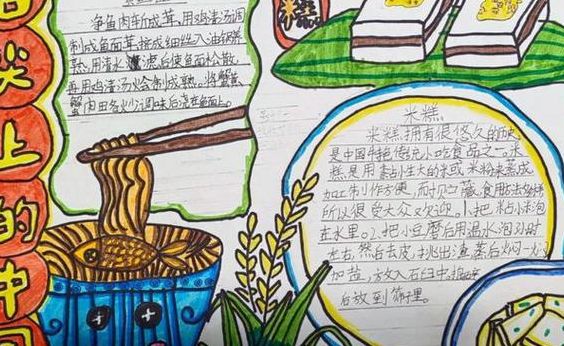 舌尖上的中国
净鱼肉斩成茸,用鸡清汤调
制成鱼面茸,挤成细丝入油锅
熟,用清水漂滤后使鱼面松散,
再用鸡清汤烩制成熟。将蟹黄
蟹肉
调味后浇在鱼面上。
糕
米糕
米糕拥有很悠久的历史,
是中国传统小吃食品之一。米
糕是用
的米或米粉来蒸成
加工制作方便,而
藏食用
所以很受大众欢迎。1.把粘小米泡
在水里。2.把小豆磨
用温水泡
小时
左右,然后去皮,挑出渣,蒸后焖一
加盐,放入石臼中
后放到筛子里。